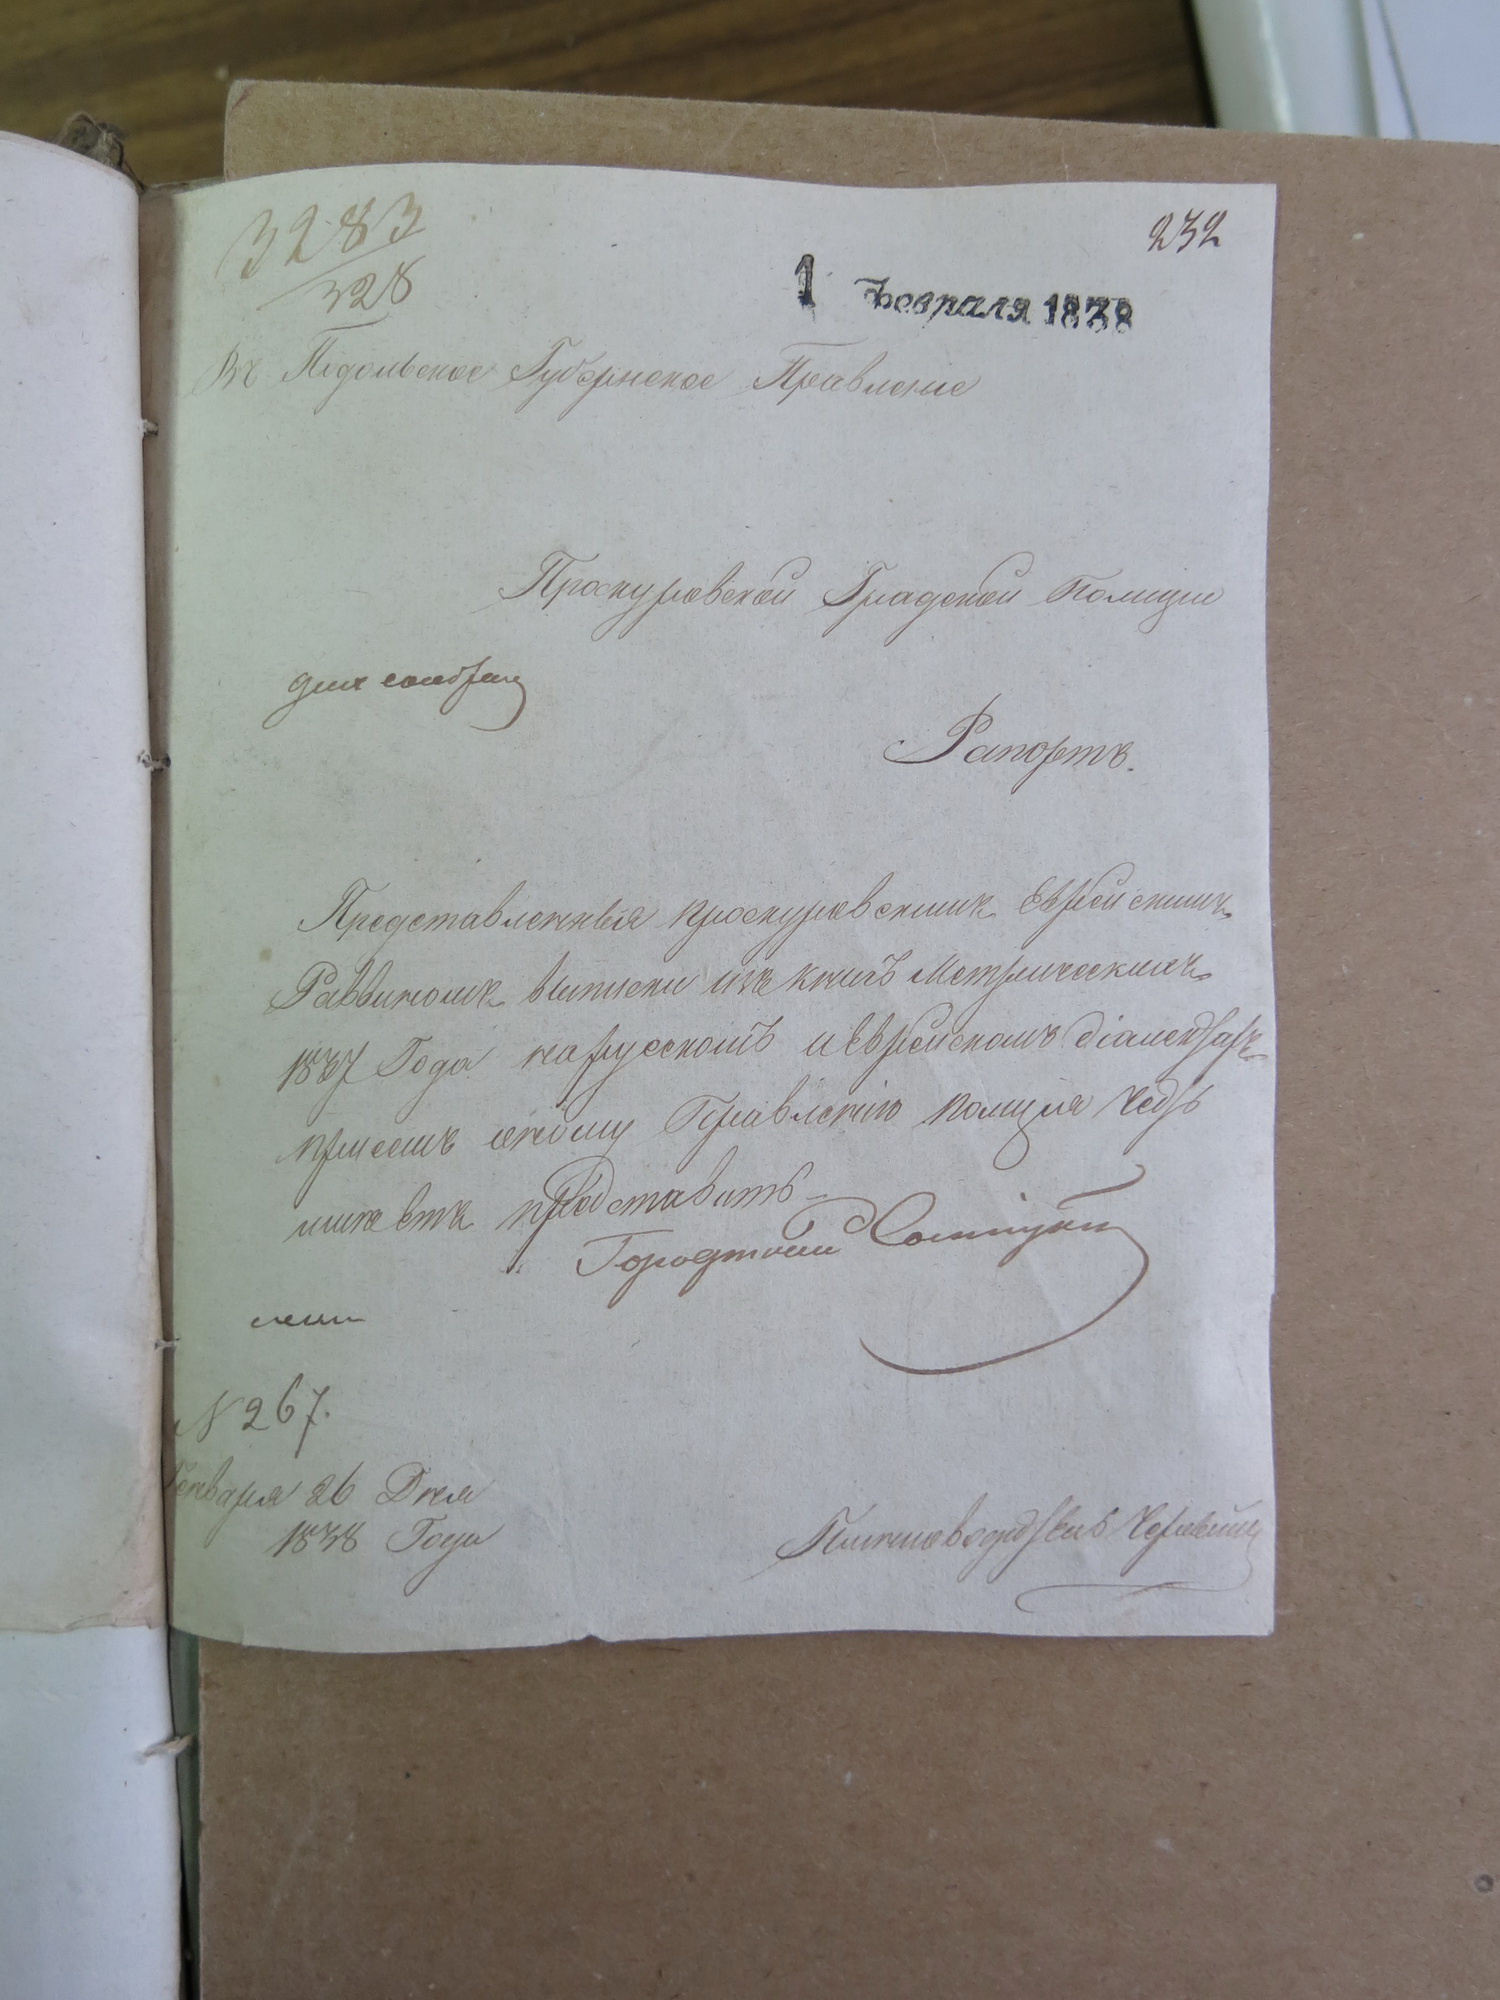 3283
328
232
1 Февраля 1838
Въ Подольское Губернское Правление
Проскуровской Градской Полиции
Рапортъ.
Представленныя проскуровскимъ Еврейскимъ
Раввиномъ выписки изъ книгъ Метрическихъ
1837 Года на русскомъ и Еврейскомъ діалектахъ
при семъ оному Правленію полиция честь
имеетъ представить
Городничий
N 267.
Генваря 26 Дня
1838 Года
Письмоводитель